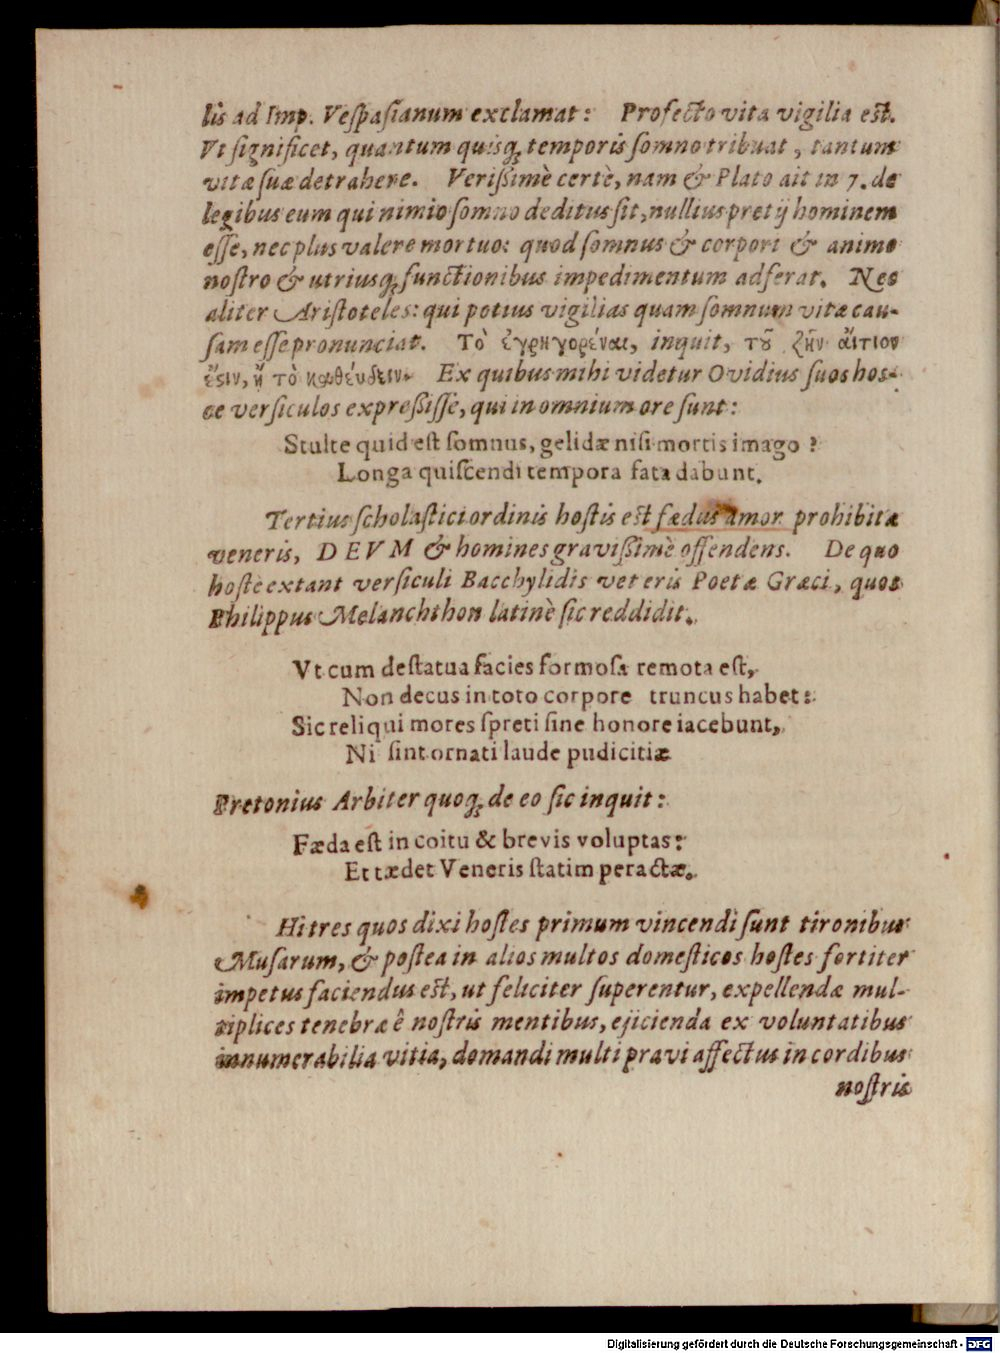 lis ad Imp. Veſpaſianum exclamat: Profecto vita vigilia eſt.
Vt ſignificet, quantum quisq; temporis ſomno tribuat, tantum
vitæ ſuæ detrahere. Verißimè certè, nam & Plato ait in 7. de
legibus eum qui nimio ſomno deditus ſit, nullius pretij hominem
eſſe, nec plus valere mortuo: quod ſomnus & corpori & animo
noſtro & utriusq; functionibus impedimentum adferat. Nec
aliter Ariſtoteles: qui potius vigilias quam ſomnum vitæ cau-
ſam eſſe pronunciat. Τὸ ἐγρηγορέναι, inquit, τȣ͂ ζῆν ἄιτιον
ἔϛιν, ἢ τὸ καθέυδειν. Ex quibus mihi videtur Ovidius ſuos hos-
ce verſiculos expreßiſſe, qui in omnium ore ſunt:
Stulte quid eſt ſomnus, gelidæ niſi mortis imago?
Longa quiſcendi tempora fata dabunt.
Tertius ſcholaſtici ordinis hoſtis eſt fædus amor prohibitæ
veneris, DEVM & homines gravißimè offendens. De quo
hoſte extant verſiculi Bacchylidis veteris Poetæ Græci, quos
Philippus Melanchthon latinè ſic reddidit.
Vt cum de ſtatua facies formoſa remota eſt,
Non decus in toto corpore truncus habet:
Sic reliqui mores ſpreti ſine honore iacebunt,
Ni ſint ornati laude pudicitiæ
Pretonius Arbiter quoq; de eo ſic inquit:
Fæda eſt in coitu & brevis voluptas:
Et tædet Veneris ſtatim peractæ.
Hi tres quos dixi hoſtes primum vincendi ſunt tironibus
Muſarum, & poſtea in alios multos domeſticos hoſtes fortiter
impetus faciendus eſt, ut feliciter ſuperentur, expellendæ mul-
tiplices tenebræ ê noſtris mentibus, ejicienda ex voluntatibus
innumerabilia vitia, domandi multi pravi affectus in cordibus
noſtris
Digitalisierung gefördert durch die Deutsche Forschungsgemeinschaft - DFG